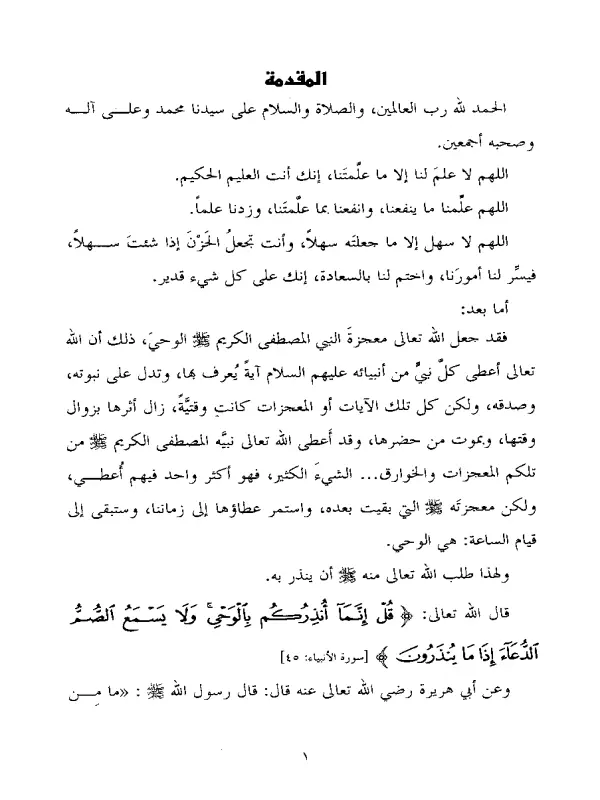 المقدمة
الحمد لله رب العالمين، والصلاة والسلام على سيدنا محمد وعلى آله
وصحبه أجمعين.
اللهم لا علمَ لنا إلا ما علّمتَنا، إنك أنت العليم الحكيم.
اللهم علِّمنا ما ينفعنا، وانفعنا بما علّمتَنا، وزدنا علماً.
اللهم لا سهل إلا ما جعلتَه سهلاً، وأنت تجعلُ الحَزْنَ إذا شئتَ سهلاً،
فيسِّر لنا أمورَنا، واختم لنا بالسعادة، إنك على كل شيء قدير.
أما بعد:
فقد جعل الله تعالى معجزةَ النبي المصطفى الكريم ﷺ الوحيَ، ذلك أن الله
تعالى أعطى كلَّ نبيٍّ من أنبيائه عليهم السلام آيةً يُعرف بها، وتدل على نبوته،
وصدقه، ولكن كل تلك الآيات أو المعجزات كانتِ وقتيَّةً، زال أثرها بزوال
وقتها، وبموت من حضرها، وقد أَعطى الله تعالى نبيَّه المصطفى الكريم ﷺ من
تلكم المعجزات والخوارق... الشيءَ الكثير، فهو أكثر واحد فيهم أُعطي،
ولكن معجزتَه ﷺ التي بقيت بعده، واستمر عطاؤها إلى زماننا، وستبقى إلى
قيام الساعة: هي الوحي.
ولهذا طلب الله تعالى منه ﷺ أن ينذر به.
قال الله تعالى: ﴿ قُلْ إِنَّمَآ أُنذِرُكُم بِٱلْوَحْىِ ۚ وَلَا يَسْمَعُ ٱلصُّمُّ
ٱلدُّعَآءَ إِذَا مَا يُنذَرُونَ ﴾ [سورة الأنبياء: ٤٥]
وعن أبي هريرة رضي الله تعالى عنه قال: قال رسول الله ﷺ : «ما مِن
١